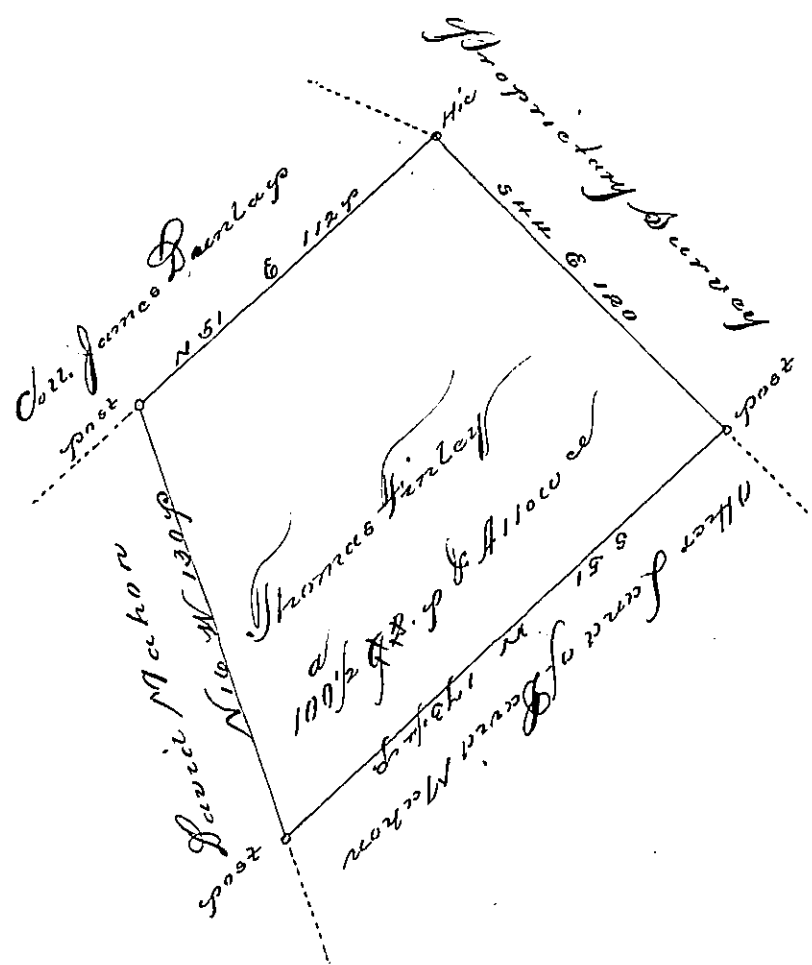 Proprietary Survey
Hic
Coll. James Dunlap
N 51 E 112 P
S 44 E 120
post
post
Thomas Finley
a
100 1/2 & Allowce
David Mahon
N 16 W 130 P
S 51 W
Other Land of David Mahon
post